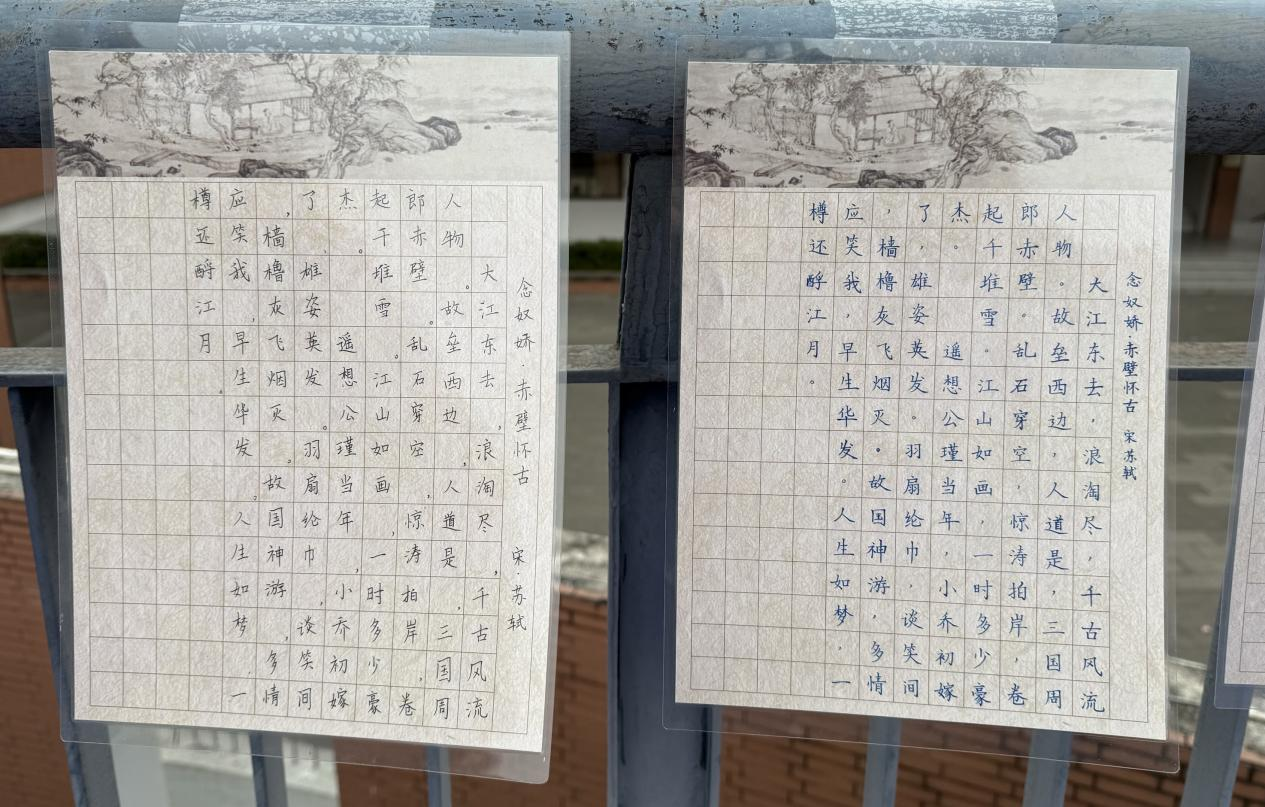 念奴娇·赤壁怀古 宋·苏轼
大江东去，浪淘尽，千古风流
人物。故垒西边，人道是，三国周
郎赤壁。乱石穿空，惊涛拍岸，卷
起千堆雪。江山如画，一时多少豪
杰。遥想公瑾当年，小乔初嫁
了，雄姿英发。羽扇纶巾，谈笑间
，樯橹灰飞烟灭。故国神游，多情
应笑我，早生华发。人生如梦，一
樽还酹江月。
念奴娇·赤壁怀古 宋 苏轼
大江东去，浪淘尽，千古风流
人物。故垒西边，人道是，三国周
郎赤壁。乱石穿空，惊涛拍岸，卷
起千堆雪。江山如画，一时多少豪
杰。遥想公瑾当年，小乔初嫁
了，雄姿英发。羽扇纶巾，谈笑间
，樯橹灰飞烟灭。故国神游，多情
应笑我，早生华发。人生如梦，一
樽还酹江月。